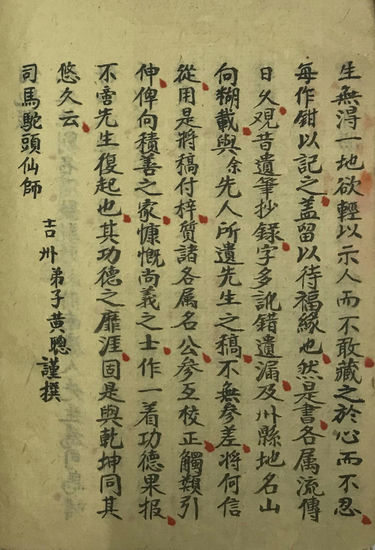 生無得一地欲輕以示人而不敢藏之於心而不忍
每作鉗以記之蓋留以待福緣也然是書各属流傳
日久观昔遺筆抄錄字多訛錯遺漏及州縣地名山
向糊載與余先人所遺先生之稿不無參差將何信
從用是將稿付梓質諸各属名公參互校正觸類引
伸俾向積善之家慷慨尚義之士作一着功德果報
不啻先生復起也其功德之靡涯固是與乾坤同其
悠久云
司馬駝頭仙師
吉州弟子黃聰謹撰